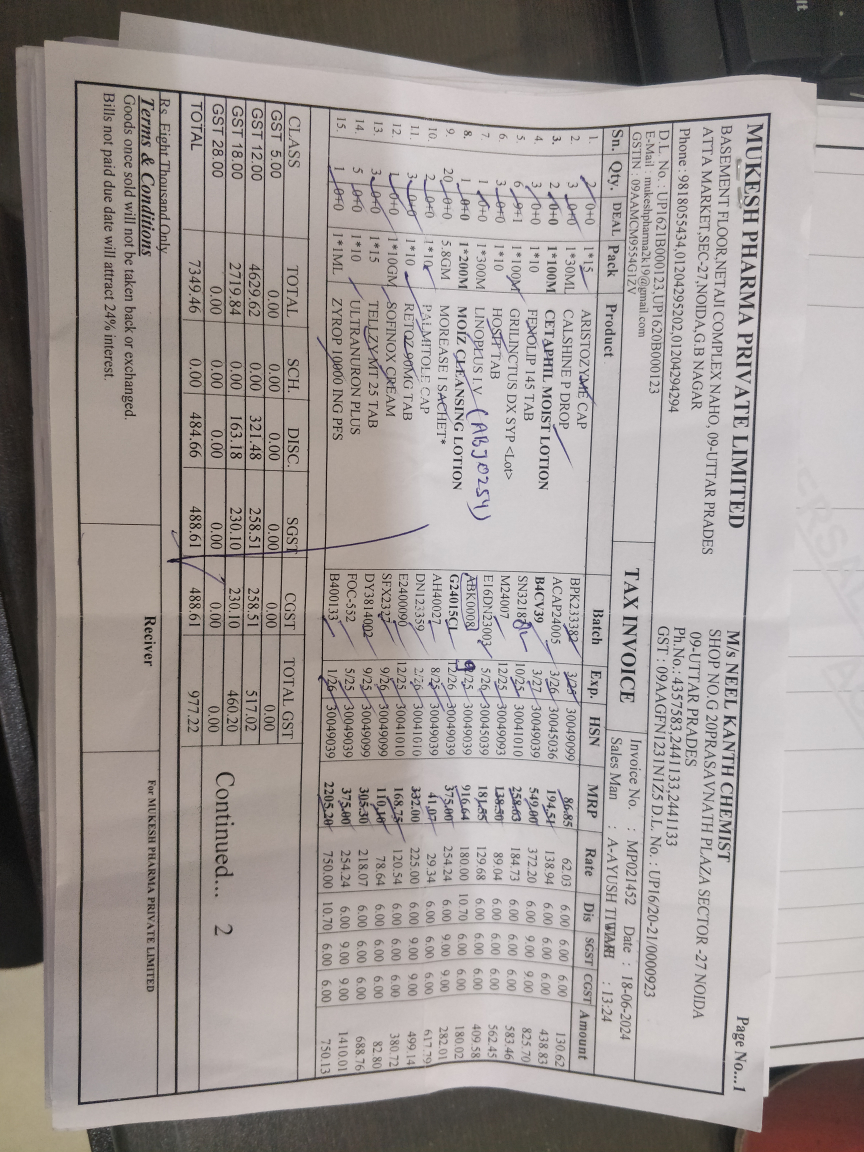 Page No...1
MUKESH PHARMA PRIVATE LIMITED M/s NEEL KANTH CHEMIST
BASEMENT FLOOR,NETAJI COMPLEX NAHO, 09-UTTAR PRADES SHOP NO.G 20PRASAVNATH PLAZA SECTOR -27 NOIDA
ATTA MARKET,SEC-27,NOIDA,G.B NAGAR 09-UTTAR PRADES
Phone : 9818055434,01204295202,01204294294 Ph.No.:4357583,2441133,2441133
D.L. No. : UP1621B000123,UP1620B000123 GST : 09AAGFN1231N1Z5 D.L. No. : UP16/20-21/0000923
E-Mail : mukeshpharma2k19@gmail.com
GSTIN : 09AAMCM9554G1ZV
TAX INVOICE
Invoice No. : MP021452 Date : 18-06-2024
Sales Man : A-AYUSH TIWARI : 13:24
Sn. Qty. DEAL Pack Product Batch Exp. HSN MRP Rate Dis SGST CGST Amount
1. 2 0+0 1*15 ARISTOZYME CAP BPK233382 3/25 30049099 86.85 62.03 6.00 6.00 6.00 130.62
2. 3 0+0 1*30ML CALSHINE P DROP ACAP24005 3/26 30045036 194.51 138.94 6.00 6.00 6.00 438.83
3. 2 0+0 1*100M CETAPHIL MOIST LOTION B4CV39 3/27 30049039 549.00 372.20 6.00 9.00 9.00 825.70
4. 3 0+0 1*10 FENOLIP 145 TAB 10/25 30041010 258.63 184.73 6.00 6.00 6.00 583.46
5. 6 9+1 1*100M GRILINCTUS DX SYP <Lot> M24007 12/25 30049093 89.04 6.00 6.00 6.00 562.45
6. 3 0+0 1*10 HOSIT TAB E16DN23003 5/26 30045039 181.55 129.68 6.00 6.00 6.00 409.58
7. 1 0+0 1*300M LINOPLUS I.V (ABJ0254) ABK0008 9/25 30049039 916.64 180.00 10.70 6.00 6.00 180.02
8. 1 0+0 1*200M MOIZ CLEANSING LOTION G24015CL 12/26 30049039 375.00 254.24 6.00 9.00 9.00 282.01
9. 20 0+0 5.8GM MOREASE 1 SACHET* AH40027 8/25 30049039 41.07 29.34 6.00 6.00 6.00 617.79
10. 2 0+0 1*10 PALMITOLE CAP DN123359 2/26 30049039 332.00 225.00 6.00 9.00 9.00 499.14
11. 3 0+0 1*10 RETOZ 90MG TAB E2400090 12/25 30041010 168.75 120.54 6.00 6.00 6.00 380.72
12. 1 0+0 1*10GM SOFINOX CREAM SFX2327 9/26 30049099 110.10 78.64 6.00 6.00 6.00 82.80
13. 3 0+0 1*15 TELLZY MT 25 TAB DY3814002 9/25 30049099 305.30 218.07 6.00 6.00 6.00 688.76
14. 5 0+0 1*10 ULTRANURON PLUS FOC-532 5/25 30049039 375.00 254.24 6.00 9.00 9.00 1410.01
15. 1 0+0 1*1ML ZYROP 10000 ING PFS B400133 1/26 30049039 2205.20 750.00 10.70 6.00 6.00 750.13
CLASS TOTAL SCH. DISC. SGST CGST TOTAL GST
GST 5.00 0.00 0.00 0.00 0.00 0.00 0.00
GST 12.00 4629.62 0.00 321.48 258.51 258.51 517.02
GST 18.00 2719.84 0.00 163.18 230.10 230.10 460.20
GST 28.00 0.00 0.00 0.00 0.00 0.00 0.00
TOTAL 7349.46 0.00 484.66 488.61 488.61 977.22
Continued... 2
Rs. Eight Thousand Only
Terms & Conditions
Goods once sold will not be taken back or exchanged.
Bills not paid due date will attract 24% interest.
Reciver
For MUKESH PHARMA PRIVATE LIMITED